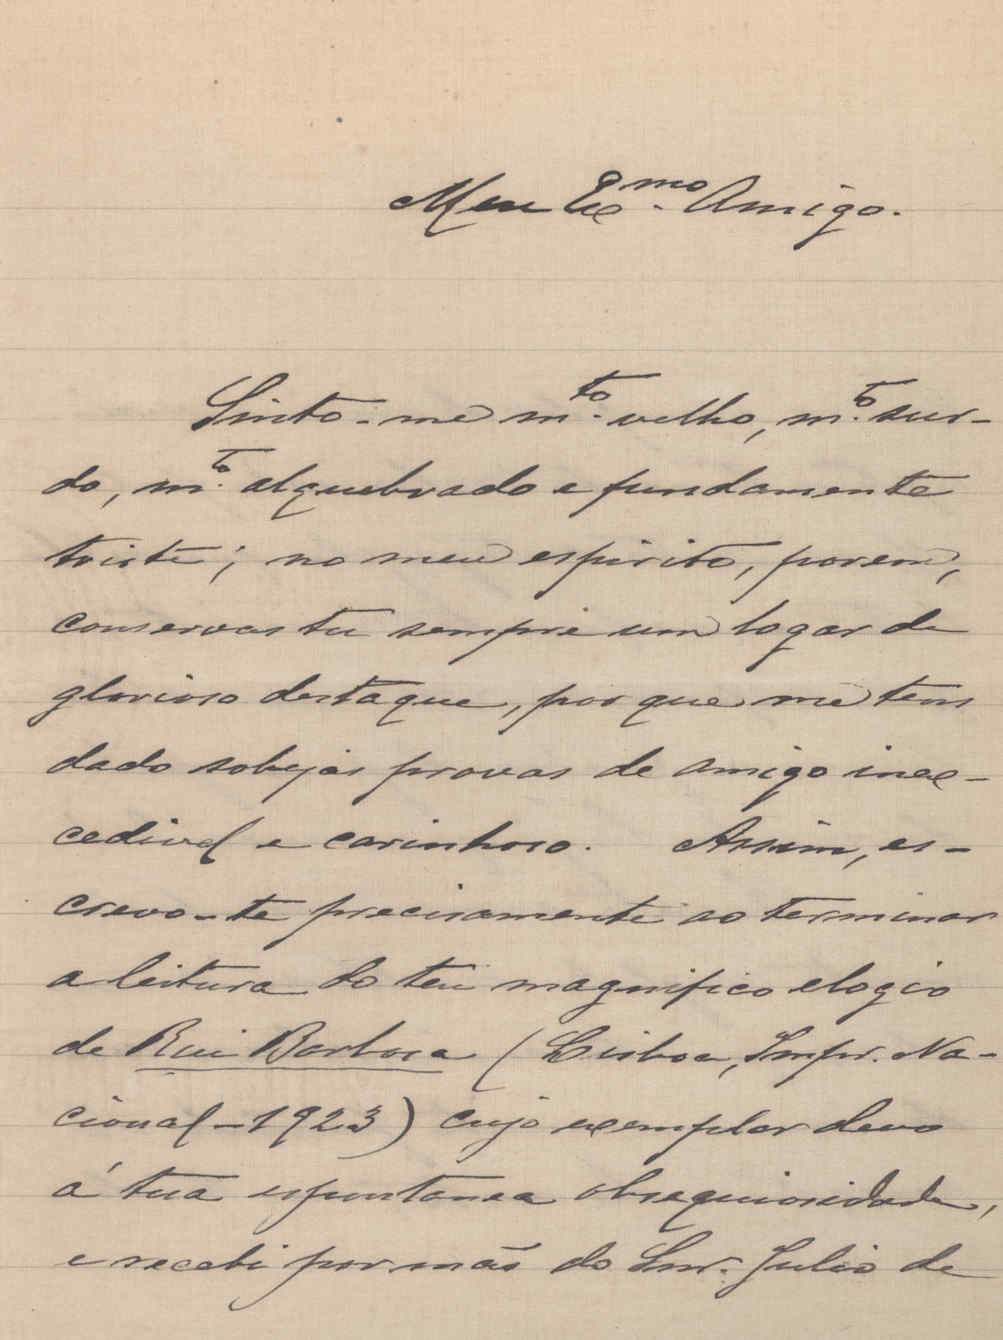 Meu Ex.mo Amigo.
Sinto-me m.to velho, m.to sur-
do, m.to alquebrado e fundamente
triste; no meu espirito, porem,
conservas tu sempre um logar de
glorioso destaque, por que me tens
dado sobejas provas de amigo inex-
cedivel e carinhoso. Assim, es-
crevo-te precisamente ao terminar
a leitura do teu magnifico elogio
de Rui Barbosa (Lisboa, Impr. Na-
cional-1923) cujo exemplar devo
á tua espontanea obsequiosidade,
e recebi por mão do Snr. Julio de